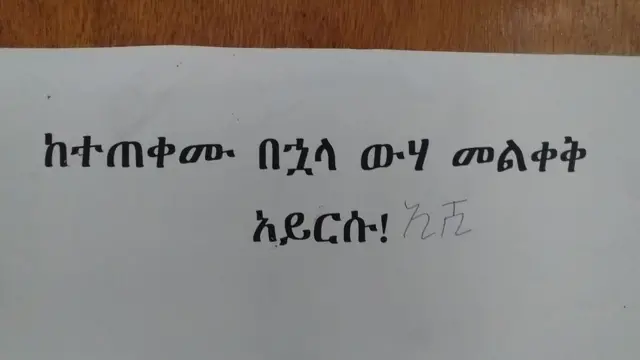 ከተጠቀሙ በኋላ ውሃ መልቀቅ
አይርሱ! ኢሺ